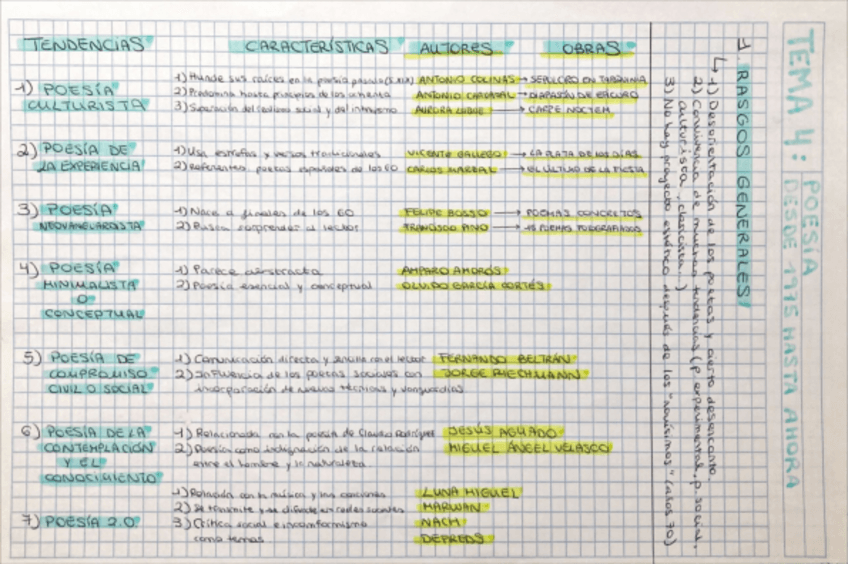 TEMA 4: POESÍA
DESDE 1975 HASTA AHORA
1. RASGOS GENERALES
1) Desorientación de los poetas y cierto desencanto.
2) Convivencia de muchas tendencias (p. experimental, p. social,
culturista, clasicista..)
3) No hay proyecto estético después de los "novísimos" (años 70)
TENDENCIAS CARACTERÍSTICAS AUTORES OBRAS
1) POESÍA
CULTURISTA
1) Hunde sus raíces en la poesía
2) Predomina hasta principios de los ochenta
3) Superación del realismo social y del intimismo
ANTONIO COLINAS → SEPULCRO EN TARQUINIA
ANTONIO CARVAJAL →
AURORA LUQUE → CARPE NOCTEM
2) POESÍA DE
LA EXPERIENCIA
1) Usa estrofas y versos tradicionales
2) Referentes: poetas españoles de los 50
VICENTE GALLEGO → LA PLATA DE LOS DÍAS
CARLOS MARZAL → EL ÚLTIMO DE LA FIESTA
3) POESÍA
NEOVANGUARDISTA
1) Nace a finales de los 60
2) Busca sorprender al lector
FELIPE BOSSO → POEMAS CONCRETOS
FRANCISCO PINO → 15 POEMAS FOTOGRAFIADOS
4) POESÍA
MINIMALISTA
O
CONCEPTUAL
1) Parece abstracta
2) Poesía esencial y conceptual
AMPARO AMORÓS
OLVIDO GARCÍA CORTÉS
5) POESÍA DE
COMPROMISO
CIVIL O SOCIAL
1) Comunicación directa y sencilla con el lector
2) Influencia de los poetas sociales con
incorporación de nuevas técnicas y vanguardias
FERNANDO BELTRÁN
JORGE RIECHMANN
6) POESÍA DE LA
CONTEMPLACIÓN
Y EL
CONOCIMIENTO
1) Relacionada con la poesía de Claudio Rodríguez
2) Poesía como indagación de la relación
entre el hombre y la naturaleza
JESÚS AGUADO
MIGUEL ÁNGEL VELASCO
7) POESÍA 2.0.
1) Relación con la música y las canciones
2) Se transmite y se difunde en redes sociales
3) Crítica social e inconformismo
como temas
LUNA MIGUEL
MARWAN
NACH
DEFREDS